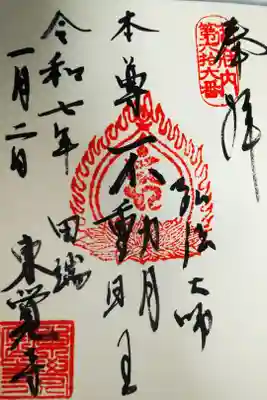 奉拝
第六拾六番
弘法大師
本尊 不動明王
田端
東覚寺
令和七年
一月二日